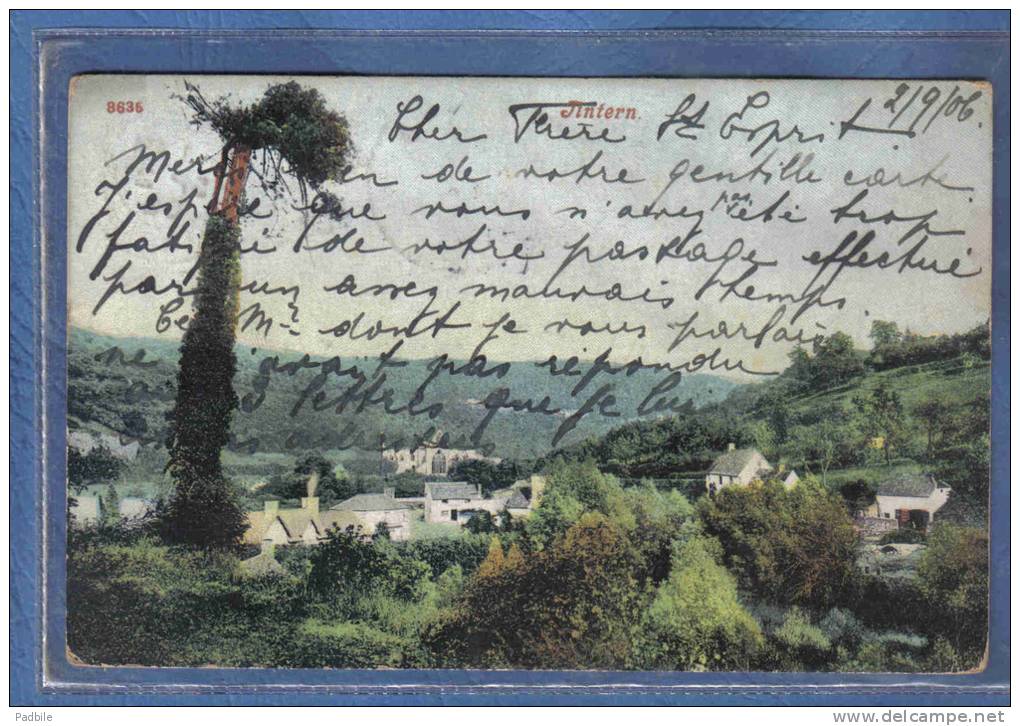 8636
Tintern.
2/9/06.
Cher Frère St Esprit
Merci bien de votre gentille carte
J'espère que vous n'avez pas été trop
fatigué de votre passage effectué
par un assez mauvais themps
Ce Mr dont je vous parlais
ne m'avait pas répondu
aux 3 lettres que je lui
Padbile
www.delcampe.net